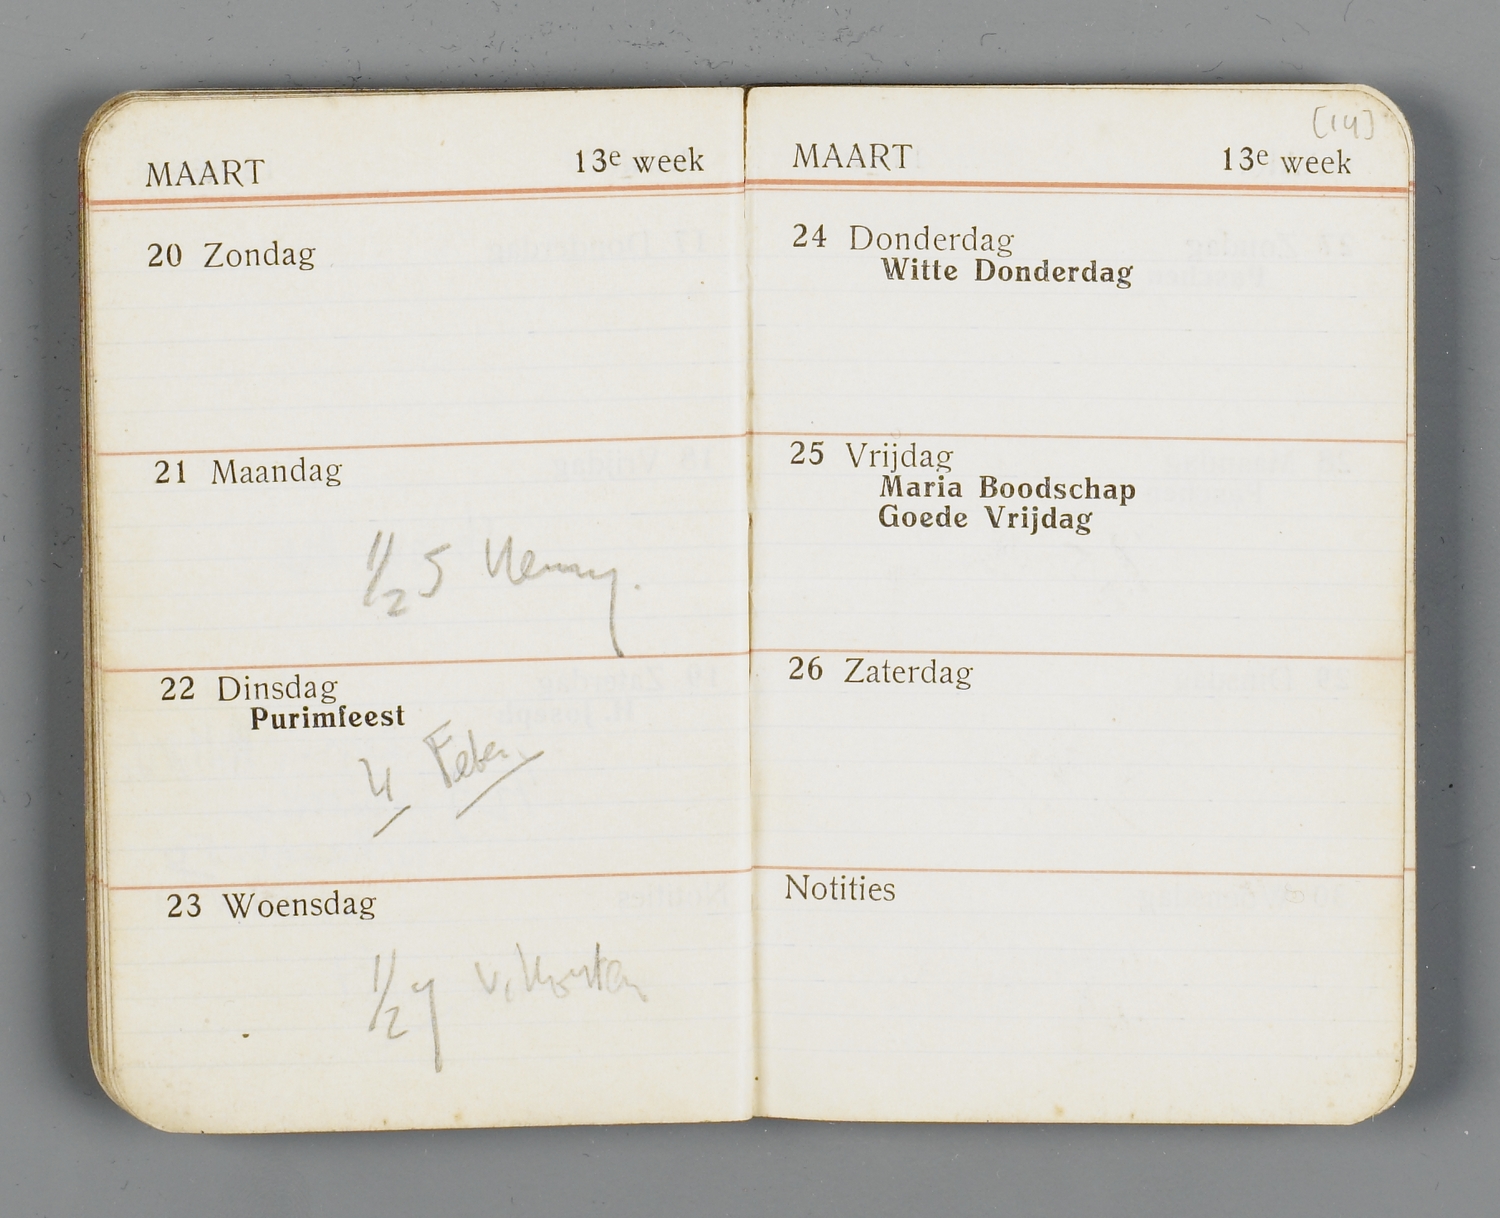 MAART 13e week
20 Zondag
21 Maandag
1/2 5 Henny.
22 Dinsdag
Purimfeest
4
23 Woensdag
1/2
[14]
MAART 13e week
24 Donderdag
Witte Donderdag
25 Vrijdag
Maria Boodschap
Goede Vrijdag
26 Zaterdag
Notities